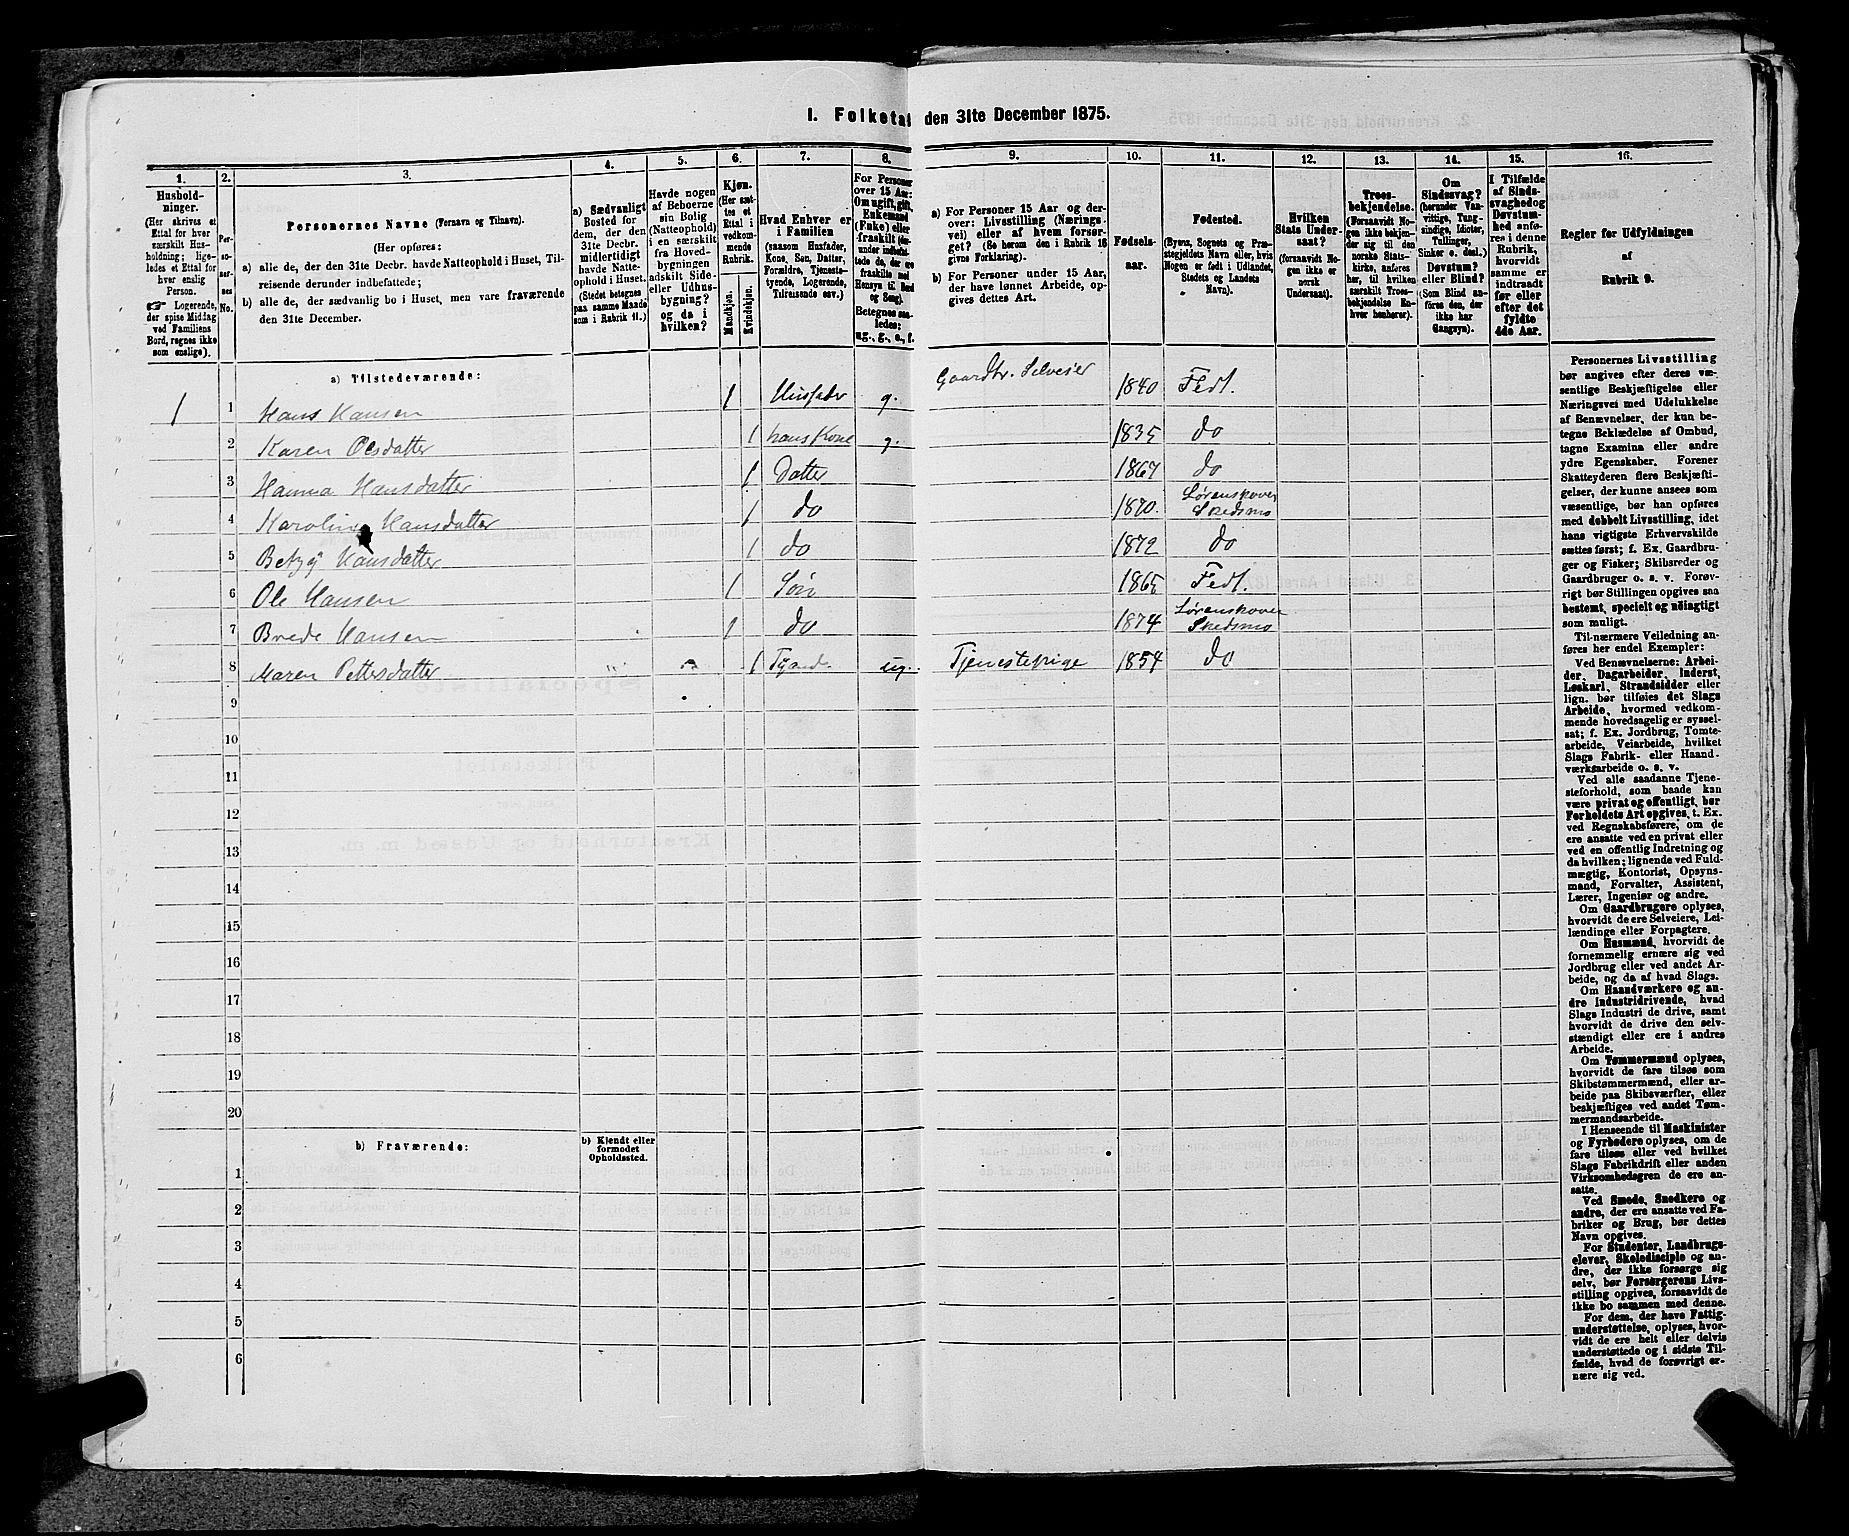 I. Folketal den 31te December 1875.
1.
Hushold-
ninger.
(Her skrives et
Ettal for hver
særskilt Hus-
holdning; lige-
ledes et Ettal for
hver enslig
Person.
☞ Logerende,
der spise Middag
ved Familiens
Bord, regnes ikke
som enslige).
2.
Per-
so-
ner-
nes
No.
3.
Personernes Navne (Fornavn og Tilnavn).
(Her opføres:
a) alle de, der den 31te Decbr. havde Natteophold i Huset, Til-
reisende derunder indbefattede;
b) alle de, der sædvanlig bo i Huset, men vare fraværende
den 31te December.
4.
a) Sædvanligt
Bosted for
dem, der den
31te Decbr.
midlertidigt
havde Natte-
ophold i Huset.
(Stedet betegnes
paa samme Maade
som i Rubrik 11.)
5.
Havde nogen
af Beboerne
sin Bolig
(Natteophold)
i en særskilt
fra Hoved-
bygningen
adskilt Side-
eller Udhus-
bygning?
og da i
hvilken?
6.
Kjøn.
(Her sæt-
tes et
Ettal i
vedkom-
mende
Rubrik.
Mandkjøn.
Kvindekjøn.
7.
Hvad Enhver er
i Familien
(saasom Husfader,
Kone, Søn, Datter,
Forældre, Tjeneste-
tyende, Logerende,
Tilreisende osv.)
8.
For Personer
over 15 Aar:
Om ugift, gift,
Enkemand
(Enke) eller
fraskilt
Betegnes saa-
ledes:
ug., g., e., f.
9.
a) For Personer 15 Aar og der-
over: Livsstilling (Nærings-
vei) eller af hvem forsør-
get? (Se herom den i Rubrik 16
givne Forklaring).
b) For Personer under 15 Aar,
der have lønnet Arbeide, op-
gives dettes Art.
10.
Fødsels-
aar.
11.
Fødested.
(Byens, Sognets og Præ-
stegjeldets Navn, eller, hvis
Nogen er født i Udlandet,
Stedets og Landets
Navn).
12.
Hvilken
Stats Under-
saat?
(Forsaavidt No-
gen ikke er
norsk
Undersaat).
13.
Troes-
bekjendelse.
(Forsaavidt No-
gen ikke bekjen-
der sig til den
norske Stats-
kirke, anføres
her, til hvilken
særskilt Troes-
bekjendelse En-
hver henhører).
14.
Om
Sindssvag?
(herunder Van-
vittige, Tung-
sindige, Idioter,
Tullinger,
Sinker o. desl.)
Døvstum?
eller Blind?
(Som Blind an-
føres den, der
ikke har
Gangsyn).
15.
I Tilfælde
af Sinds-
svaghed og
Døvstum-
hed anfø-
res i denne
Rubrik,
hvorvidt
samme er
indtraadt
før eller
efter det
fyldte
4de Aar.
16.
Regler for Udfyldningen
af
Rubrik 9.
a) Tilstedeværende:
1 1 Hans Hansen 1 Husfader g. Gaardbr. Selveier 1840 Fedt.
2 Karen Olsdatter 1 hans Kone g. 1835 do
3 Hanna Hansdatter 1 Datter 1867 do
4 Karoline Hansdatter 1 do 1870 Lørenskoven Skedsmo
5 Betzy Hansdatter 1 do 1872 do
6 Ole Hansen 1 Søn 1865 Fedt.
7 Brede Hansen 1 do 1874 Lørenskoven Skedsmo
8 Maren Pettersdatter 1 Tyende ug. Tjenestepige 1854 do
9
10
11
12
13
14
15
16
17
18
19
20
b) Fraværende:
b) Kjendt eller
formodet
Opholdssted.
1
2
3
4
5
6
Personernes Livsstilling
bør angives efter deres væ-
sentlige Beskjæftigelse eller
Næringsvei med Udelukkelse
af Benævnelser, der kun be-
tegne Beklædelse af Ombud,
tagne Examina eller andre
ydre Egenskaber. Forener
Skatteyderen flere Beskjæfti-
gelser, der kunne ansees som
væsentlige, bør han opføres
med dobbelt Livsstilling, idet
hans vigtigste Erhvervskilde
sættes først; f. Ex. Gaardbru-
ger og Fisker; Skibsreder og
Gaardbruger o. s. v. Forøv-
rigt bør Stillingen opgives saa
bestemt, specielt og nøiagtigt
som muligt.
Til nærmere Veiledning an-
føres her endel Exempler:
Ved Benævnelserne: Arbei-
der, Dagarbeider, Inderst,
Løskarl, Strandsidder eller
lign. bør tilføies det Slags
Arbeide, hvormed vedkom-
mende hovedsagelig er syssel-
sat; f. Ex. Jordbrug, Tomte-
arbeide, Veiarbeide, hvilket
Slags Fabrik- eller Haand-
værksarbeide o. s. v.
Ved alle saadanne Tjene-
steforhold, som baade kan
være privat og offentligt, bør
Forholdets Art opgives, t. Ex.
ved Regnskabsførere, om de
ere ansatte ved en privat eller
ved en offentlig Indretning og
da hvilken; lignende ved Fuld-
mægtig, Kontorist, Opsyns-
mand, Forvalter, Assistent,
Lærer, Ingeniør og andre.
Om Gaardbrugere oplyses,
hvorvidt de ere Selveiere, Lei-
lændinge eller Forpagtere.
Om Husmænd, hvorvidt de
fornemmelig ernære sig ved
Jordbrug eller ved andet Ar-
beide, og da af hvad Slags.
Om Haandværkere og an-
dre Industridrivende, hvad
Slags Industri de drive, samt
hvorvidt de drive den selv-
stændigt eller ere i andres
Arbeide.
Om Tømmermænd oplyses,
hvorvidt de fare tilsøs som
Skibstømmermænd, eller ar-
beide paa Skibsværfter, eller
beskjæftiges ved andet Tøm-
mermandsarbeide.
I Henseende til Maskinister
og Fyrbødere oplyses, om de
fare tilsøs eller ved hvilket
Slags Fabrikdrift eller anden
Virksomhedsgren de ere an-
satte.
Ved Smede, Snedkere og
andre, der ere ansatte ved Fa-
briker og Brug, bør dettes
Navn opgives.
For Studenter, Landbrugs-
elever, Skoledisciple og an-
dre, der ikke forsørge sig
selv, bør Forsørgerens Livs-
stilling opgives, forsaavidt de
ikke bo sammen med denne.
For dem, der have Fattig-
understøttelse, oplyses, hvor-
vidt de ere helt eller delvis
understøttede og i sidste Til-
fælde, hvad de forøvrigt er-
nære sig ved.